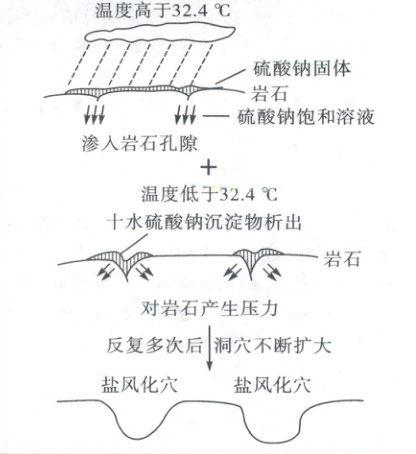 温度高于32.4 ℃
硫酸钠固体
岩石
硫酸钠饱和溶液
渗入岩石孔隙
+
温度低于32.4 ℃
十水硫酸钠沉淀物析出
岩石
对岩石产生压力
反复多次后 洞穴不断扩大
盐风化穴 盐风化穴